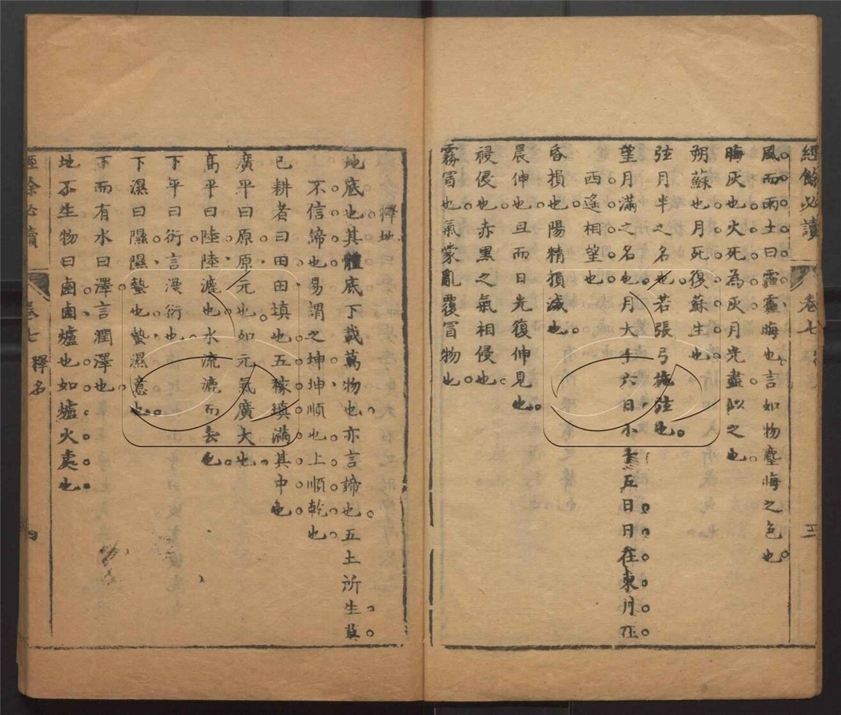 經餘必讀 卷七 三
風而雨土曰霾霾晦也言如物塵晦之色也
晦灰也火死為灰月光盡似之也
朔蘇也月死復蘇生也
弦月半之名也若張弓施弦也
望月滿之名也月大十六日小十五日日在東月在
西遙相望也
昏損也陽精損滅也
晨伸也旦而日光復伸見也
祲侵也赤黑之氣相侵也
霧冒也氣蒙亂覆冒物也
釋地
地底也其體底下載萬物也亦言諦也五土所生莫
不信諦也易謂之坤坤順也上順乾也
已耕者曰田田填也五稼填滿其中也
廣平曰原原元也如元氣廣大也
高平曰陸陸漉也水流漉而去也
下平曰衍言漫衍也
下濕曰隰隰蟄也蟄濕意也
下而有水曰澤言潤澤也
地不生物曰鹵鹵爐也如爐火處也
經餘必讀 卷七 釋名 四